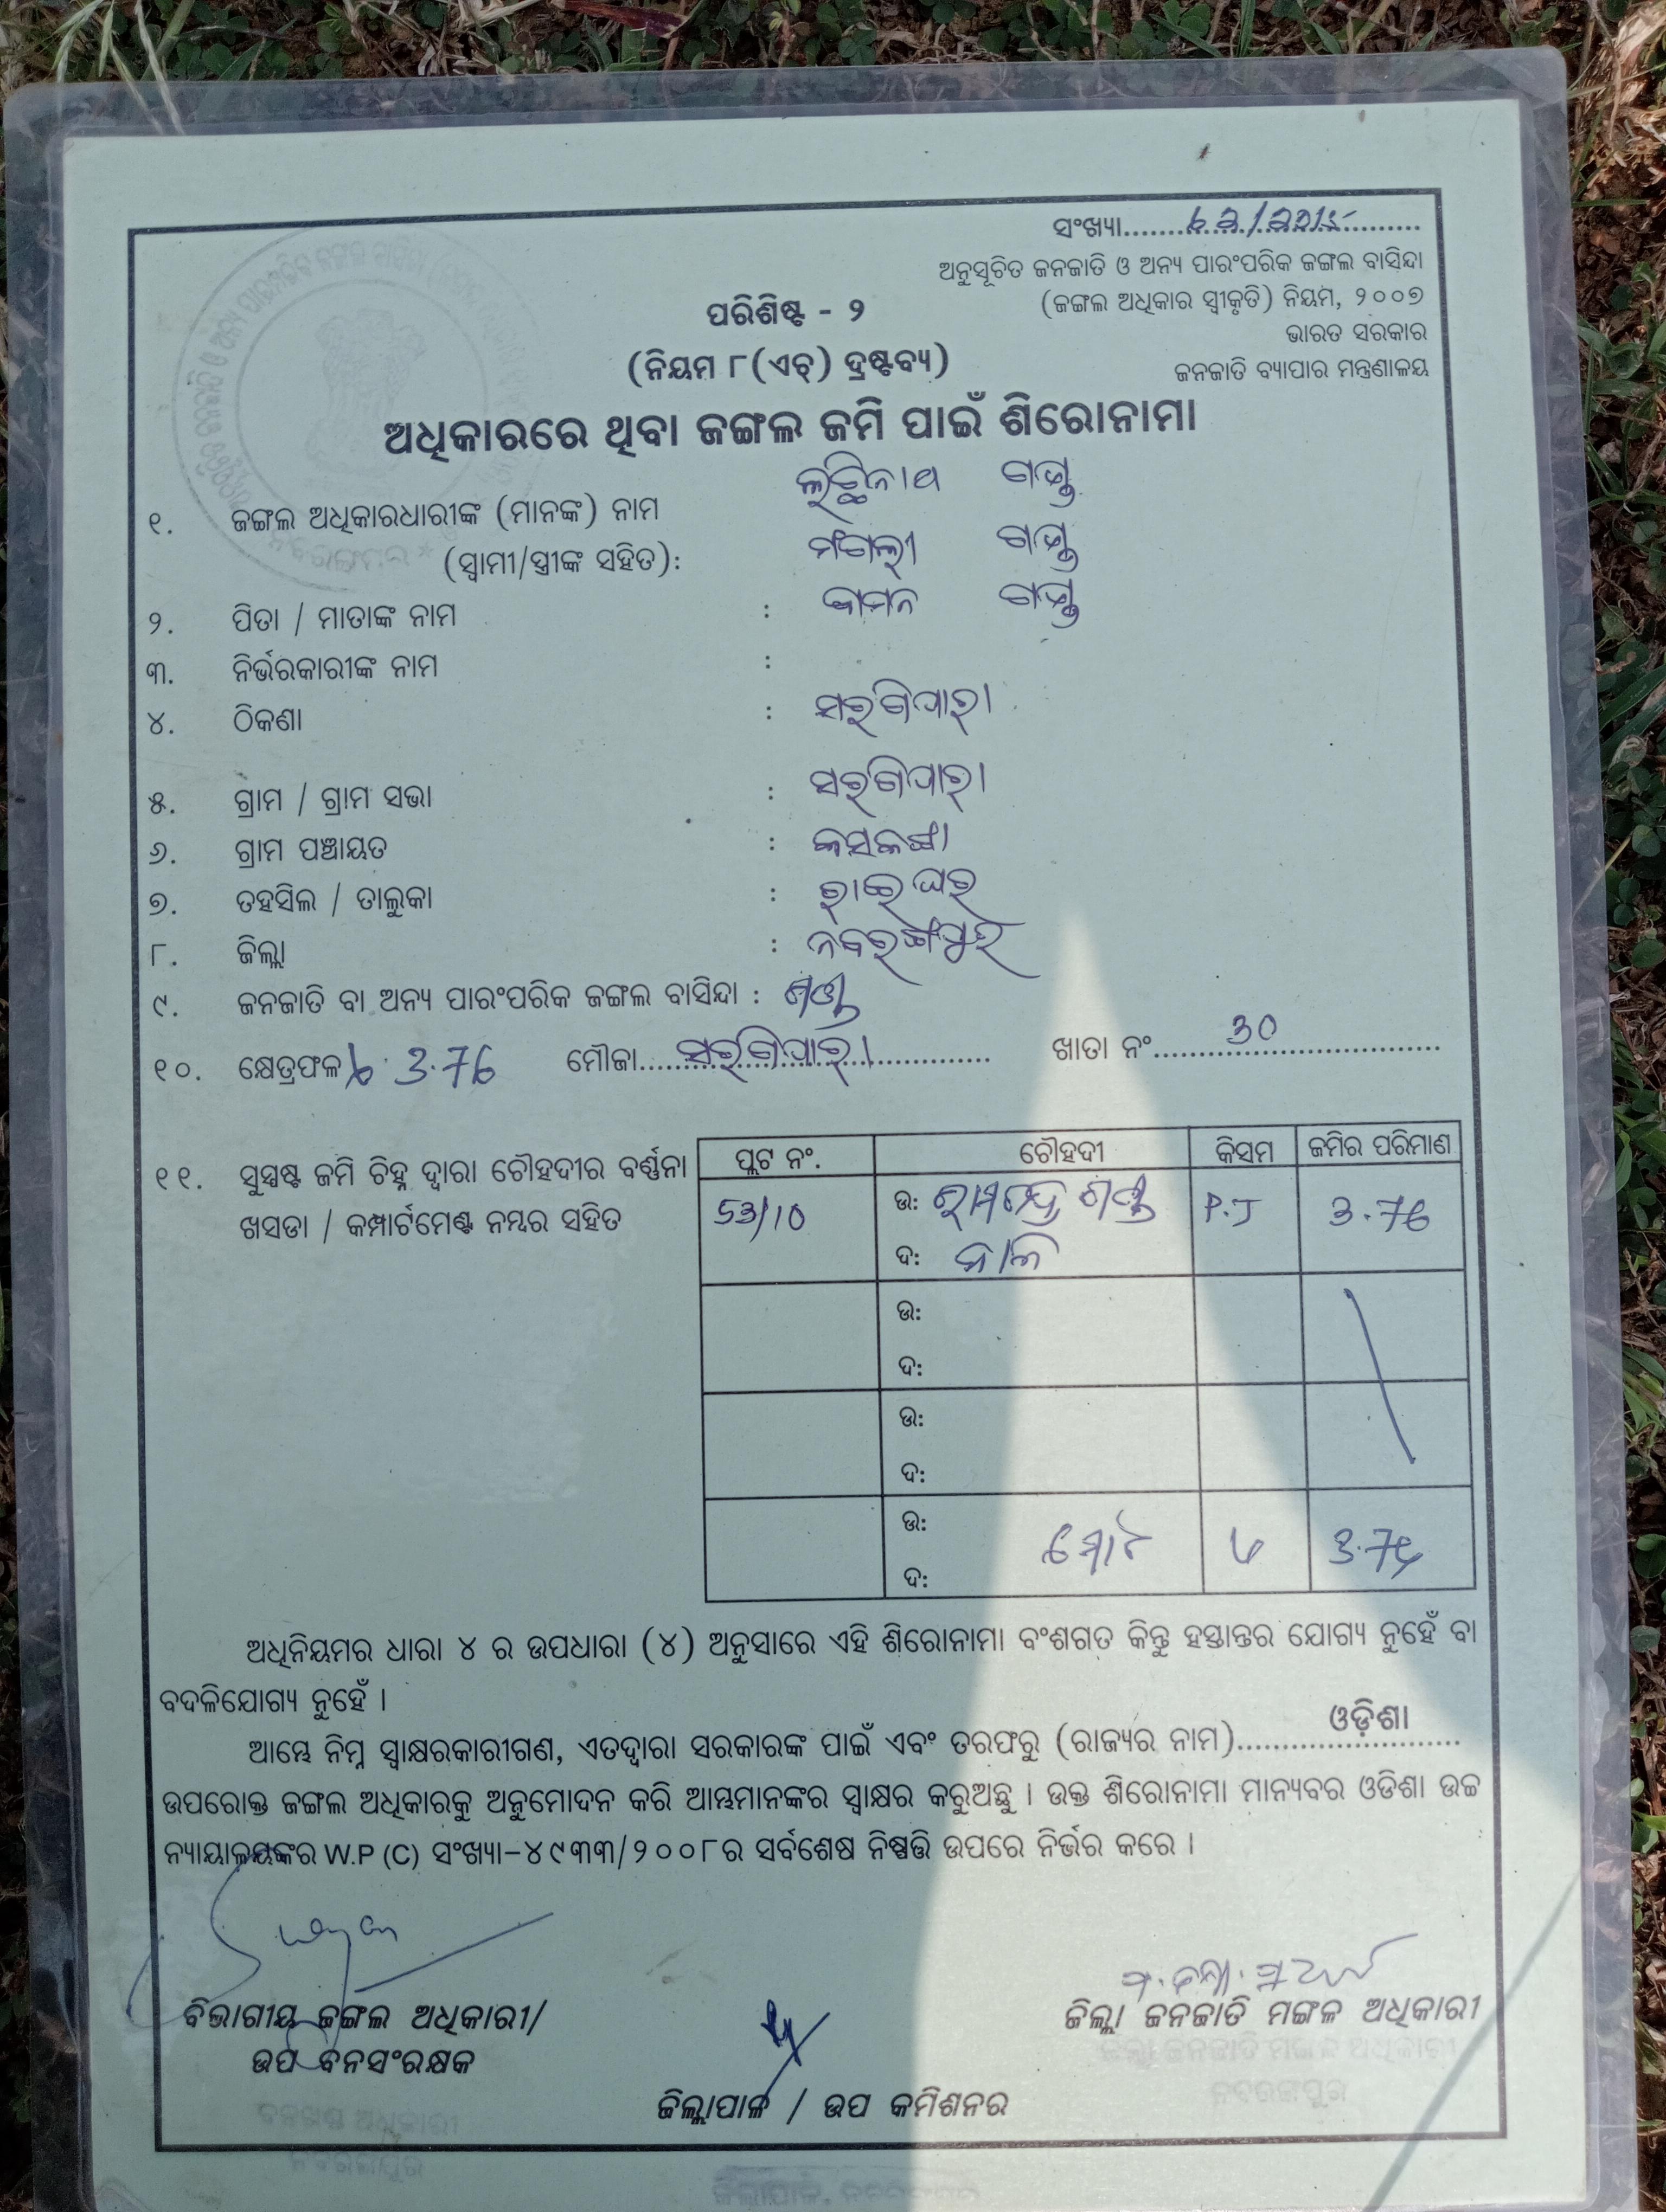 ସଂଖ୍ୟା
ଅନୁସୂଚିତ ଜନଜାତି ଓ ଅନ୍ୟ ପାରଂପରିକ ଜଙ୍ଗଲ ବାସିନ୍ଦା
(ଜଙ୍ଗଲ ଅଧିକାର ସ୍ୱୀକୃତି) ନିୟମ, ୨୦୦୭
ଭାରତ ସରକାର
ଜନଜାତି ବ୍ୟାପାର ମନ୍ତ୍ରଣାଳୟ
ପରିଶିଷ୍ଟ - ୨
(ନିୟମ ୮(ଏଚ୍) ଦ୍ରଷ୍ଟବ୍ୟ)
ଅଧିକାରରେ ଥିବା ଜଙ୍ଗଲ ଜମି ପାଇଁ ଶିରୋନାମା
୧. ଜଙ୍ଗଲ ଅଧିକାରଧାରୀଙ୍କ (ମାନଙ୍କ) ନାମ
(ସ୍ୱାମୀ/ସ୍ତ୍ରୀଙ୍କ ସହିତ):
୨. ପିତା / ମାତାଙ୍କ ନାମ :
୩. ନିର୍ଭରକାରୀଙ୍କ ନାମ :
୪. ଠିକଣା : ସରଗିପାରା
୫. ଗ୍ରାମ / ଗ୍ରାମ ସଭା : ସରଗିପାରା
୬. ଗ୍ରାମ ପଞ୍ଚାୟତ :
୭. ତହସିଲ / ତାଲୁକା : ରାଇଘର
୮. ଜିଲ୍ଲା : ନବରଙ୍ଗପୁର
୯. ଜନଜାତି ବା ଅନ୍ୟ ପାରଂପରିକ ଜଙ୍ଗଲ ବାସିନ୍ଦା :
୧୦. କ୍ଷେତ୍ରଫଳ 3.76 ମୌଜା ସରଗିପାରା ଖାତା ନଂ 30
୧୧. ସୁସ୍ପଷ୍ଟ ଜମି ଚିହ୍ନ ଦ୍ୱାରା ଚୌହଦୀର ବର୍ଣ୍ଣନା
ଖସଡା / କମ୍ପାର୍ଟମେଣ୍ଟ ନମ୍ବର ସହିତ
ପ୍ଲଟ ନଂ. ଚୌହଦୀ କିସମ ଜମିର ପରିମାଣ
53/10 ଉ: P.J 3.76
ଦ:
ଉ:
ଦ:
ଉ:
ଦ:
ଉ: ମୋଟ 3.76
ଦ:
ଅଧିନିୟମର ଧାରା ୪ ର ଉପଧାରା (୪) ଅନୁସାରେ ଏହି ଶିରୋନାମା ବଂଶଗତ କିନ୍ତୁ ହସ୍ତାନ୍ତର ଯୋଗ୍ୟ ନୁହେଁ ବା
ବଦଳିଯୋଗ୍ୟ ନୁହେଁ ।
ଆମ୍ଭେ ନିମ୍ନ ସ୍ୱାକ୍ଷରକାରୀଗଣ, ଏତଦ୍ୱାରା ସରକାରଙ୍କ ପାଇଁ ଏବଂ ତରଫରୁ (ରାଜ୍ୟର ନାମ) ଓଡ଼ିଶା
ଉପରୋକ୍ତ ଜଙ୍ଗଲ ଅଧିକାରକୁ ଅନୁମୋଦନ କରି ଆମ୍ଭମାନଙ୍କର ସ୍ୱାକ୍ଷର କରୁଅଛୁ । ଉକ୍ତ ଶିରୋନାମା ମାନ୍ୟବର ଓଡିଶା ଉଚ୍ଚ
ନ୍ୟାୟାଳୟଙ୍କର W.P (C) ସଂଖ୍ୟା–୪୯୩୩/୨୦୦୮ର ସର୍ବଶେଷ ନିଷ୍ପତ୍ତି ଉପରେ ନିର୍ଭର କରେ ।
ବିଭାଗୀୟ ଜଙ୍ଗଲ ଅଧିକାରୀ/
ଉପ ବନସଂରକ୍ଷକ
ଜିଲ୍ଲାପାଳ / ଉପ କମିଶନର
ଜିଲ୍ଲା ଜନଜାତି ମଙ୍ଗଳ ଅଧିକାରୀ